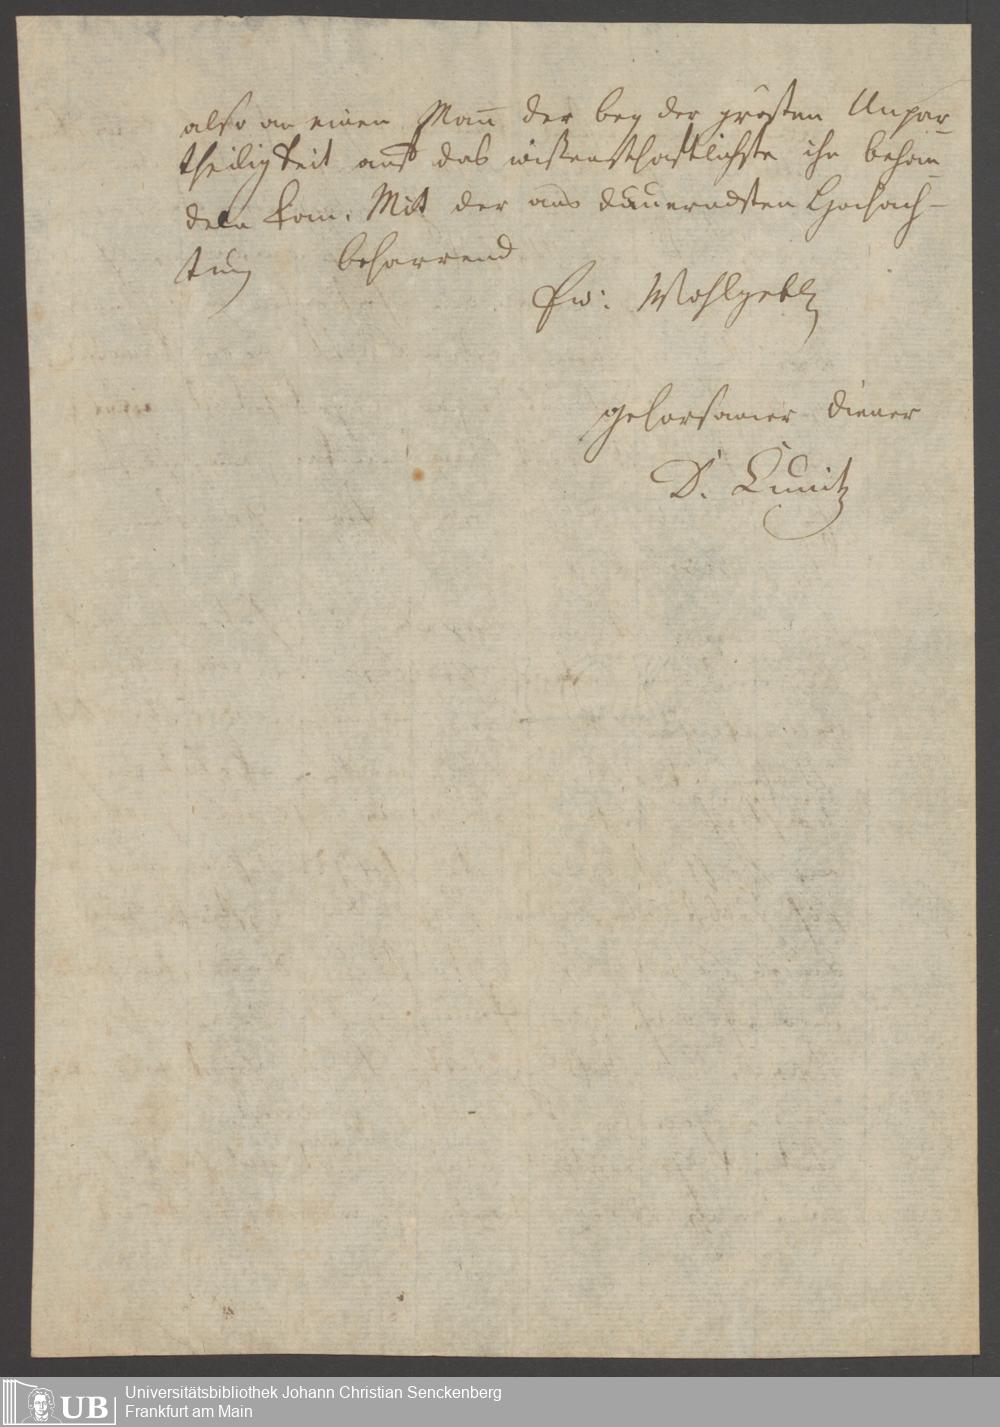 also an einen Man̄ der bey der grösten Unpar-
theiligkeit auf das wissenschaftlichste ihn behan-
deln kan. Mit der aus dauerndsten Hochach-
tung beharrend
Ew: Wohlgebl
gehorsamer Diener
D. Kunitz
UB
Universitätsbibliothek Johann Christian Senckenberg
Frankfurt am Main